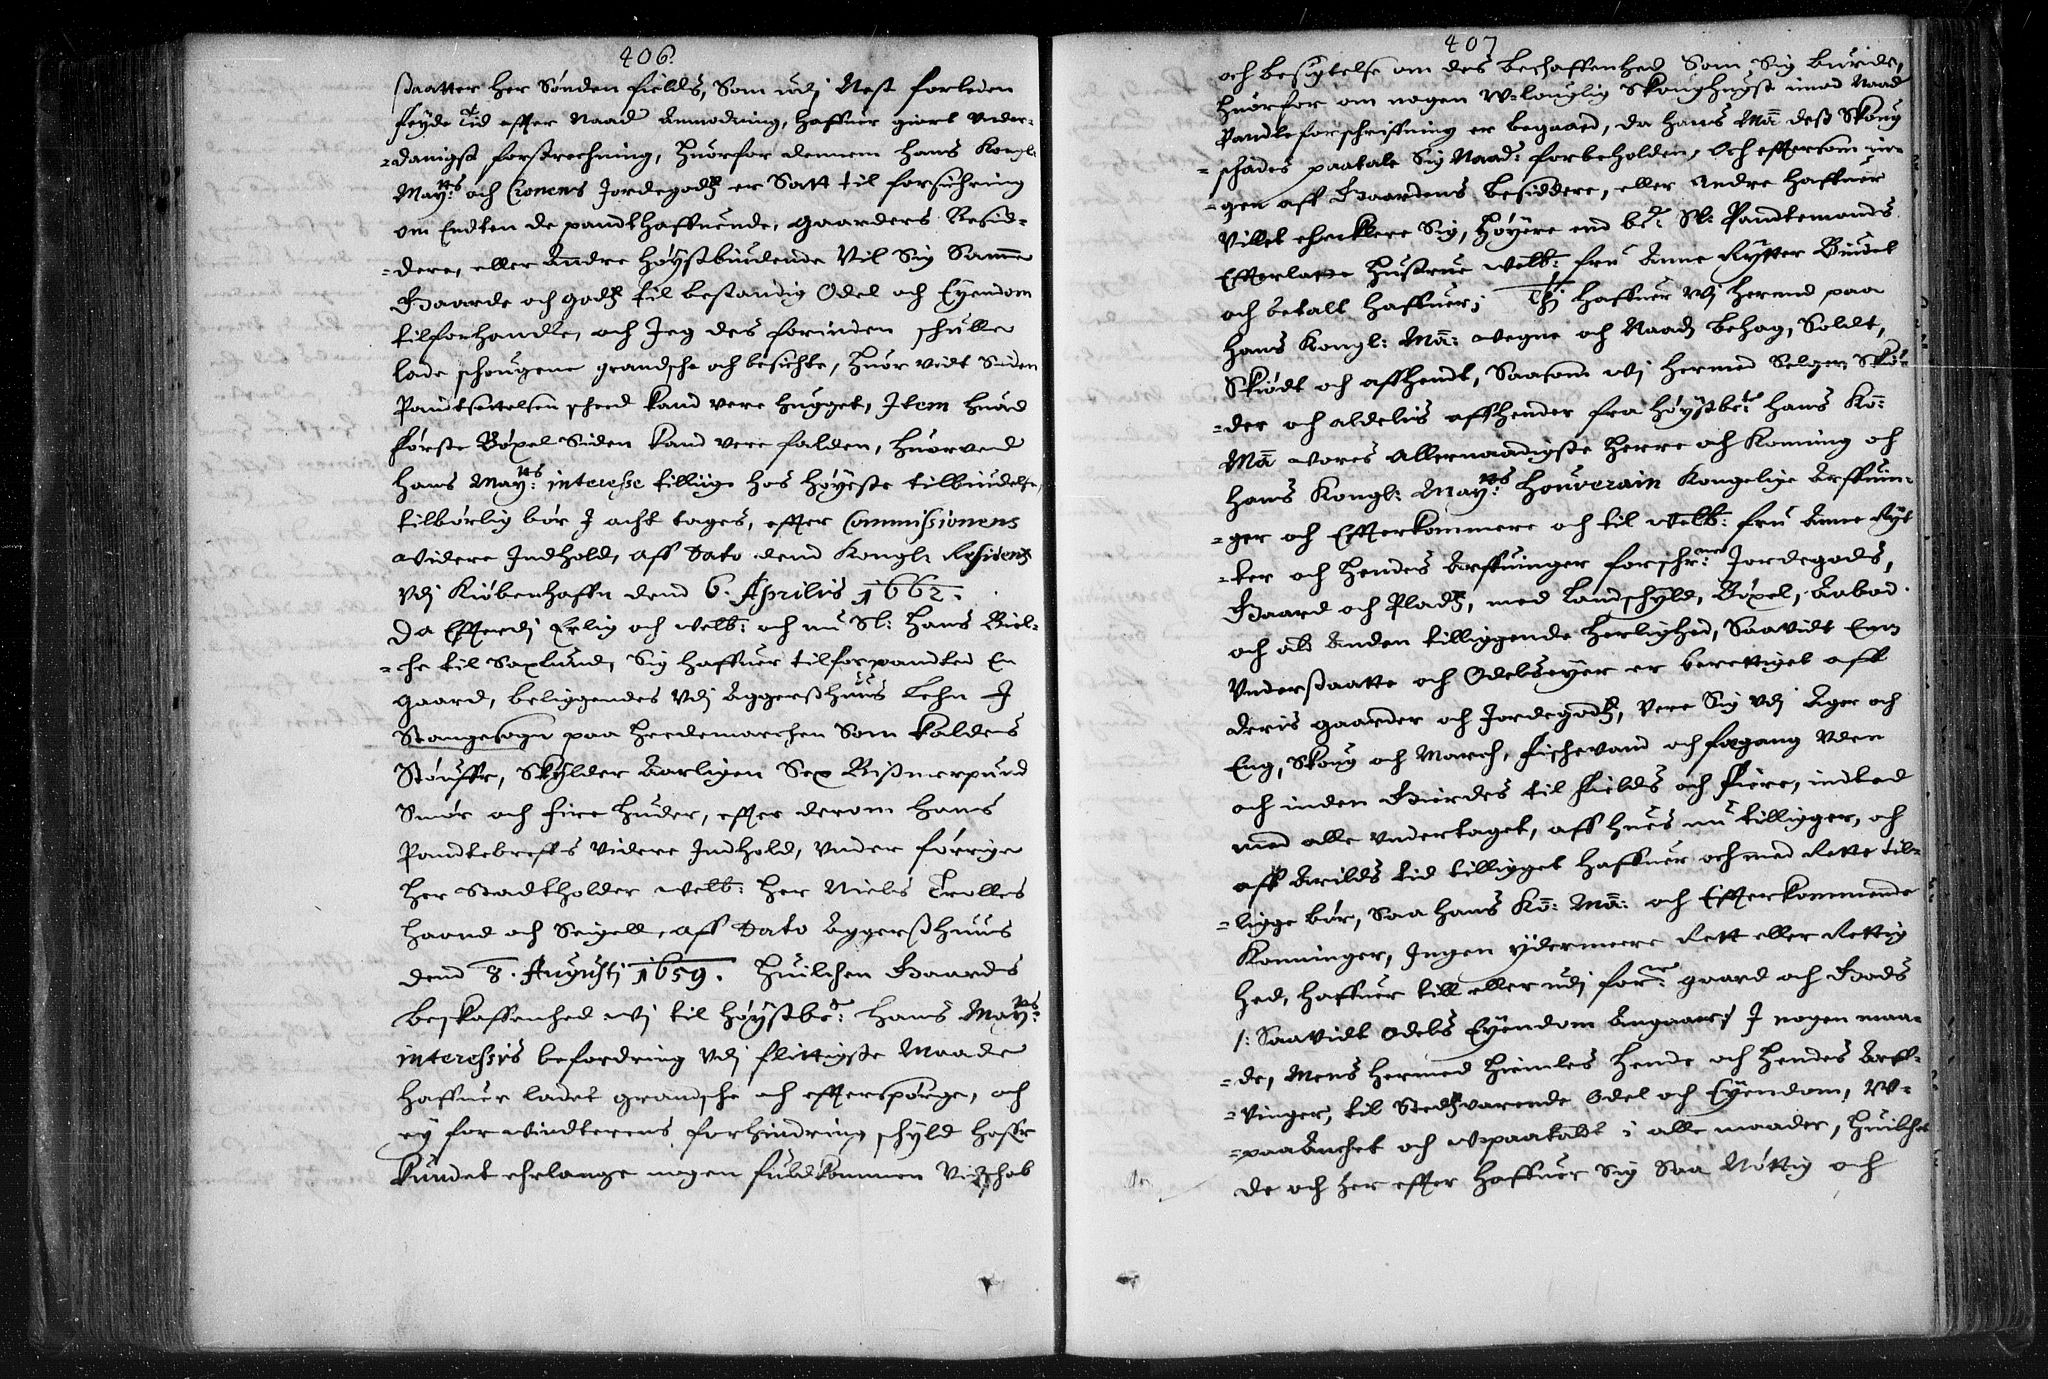 406.
ßaatter her Sønden fields, Som udj Nest forleden
feyde tid effter Naad Anmodning, haffuer giort Vnder-
-danigst forstrechning, Huorfor dennem hans Kongl:
May:ts och Cronens Jordegodz er Satt til forsichring
om Endten de panthaffuende, gaarders Besid-
-dere, eller Andre høystbiudende Vil Sig Samme
Gaarde och godz til bestandig Odel och Eyendom
tilforhandle, och Jeg des forinden schulle
lade schougene grandsche och besichte, Huor vidt Siden
Pandtsettelsen scheed kand vere hugget, Item huad
første Bøxel Siden kand vere falden, huorved
hans May:ts interesse tillige hos høyeste tilbiudelse,
tilbørlig bør J acht tages, effter Commissionens
widere Indhold, aff Dato dend Kongl: Residents
Vdj Kiøbenhaffn dend 6. Aprilis 1662.
Da Efterdj Erlig och welb: och nu Sl: Hans Biel-
-che til Saxlund, Sig haffuer tilforpandted En
gaard, beliggendes Vdj Aggershuus Lehn J
Stangesogn paa Hedemarchen Som kaldes
Støuffe, Skylder Aarligen Sex Bismerpund
Smør och fire huder, effter derom hans
Pandtebreffs videre Indhold, Vnder forrige
Her Stadtholder welb: Her Niels Trolles
Haand och Seigell, aff Dato Aggershuus
dend 8. Augustj 1659. Huilchen Gaards
beskaffenhed wj til høystbe:te hans May:ts
interessis befordring Vdj flittigste Maade
Haffuer ladet grandsche och efftersporge, och
ey for windterens forhindring schyld hafr
kundet erlange nogen fuldkommen Vidschab
407
och besigtelse om des bechaffenhed Som Sig burde,
Huorfor om nogen W-louglig Skoughugst imod Naad
Pandteforschriffning er begaaed, da hans Ma deß Skoug
-schades paatale Sig Naad: forbeholden, Och efftersom in-
-gen aff Gaardens besiddere, eller Andre haffuer
Villet erklere Sig, Høyere end be:te Sl: Pandtemands
Efterlatte Hustrue welb: fru Anne Rytter Budet
och betalt haffuer; Thj haffuer Wj hermed paa
hans Kongl: Ma: wegne och Naadj behag, Soldt,
Skiødt och affhendt, Saasom wj hermed Selger Skiø-
-der och aldelis affhender fra høystbe:te hans Ko:
Ma vores Allernaadigste Herre och Konning och
hans Kongl: May:ts Souverain Kongelige Arffuin-
-ger och Effterkommere och til welb: fru Anne Ryt
-ter och hendes Arffuinger forschr:ne Jordegods,
Gaard och Pladz, med Landschyld, Bøxel, Aabod
och ald Anden tilliggende herlighed, Saavidt Een
Vndersaatte och Odelseyer er berettiget aff
deris gaarder och Jordegodz, Vere Sig Vdj Ager och
Eng, Skoug och March, fischevand och fægang Vden
och inden Gierdes til fields och fiere, indted
med alle vndertaget, aff hues nu tilligger, och
aff Arilds tid tilligget haffuer och med Rette til-
-ligge bør, Saa hans Ko: Ma: och Effterkommende
Konninger, Ingen ydermeere Rett eller Rettig
hed, haffuer till eller udj for:ne gaard och Gods
/: Saavidt Odels Eyendom Angaaer:/ J nogen maa-
-de, Mens hermed hiemles hende och hendes Arff-
-vinger, til Stedzvarende Odel och Eyendom, W-
-paaAnchet och Wpaataldt i alle maader, Huilchet
de och her effter haffuer Sig Saa Nøttig och